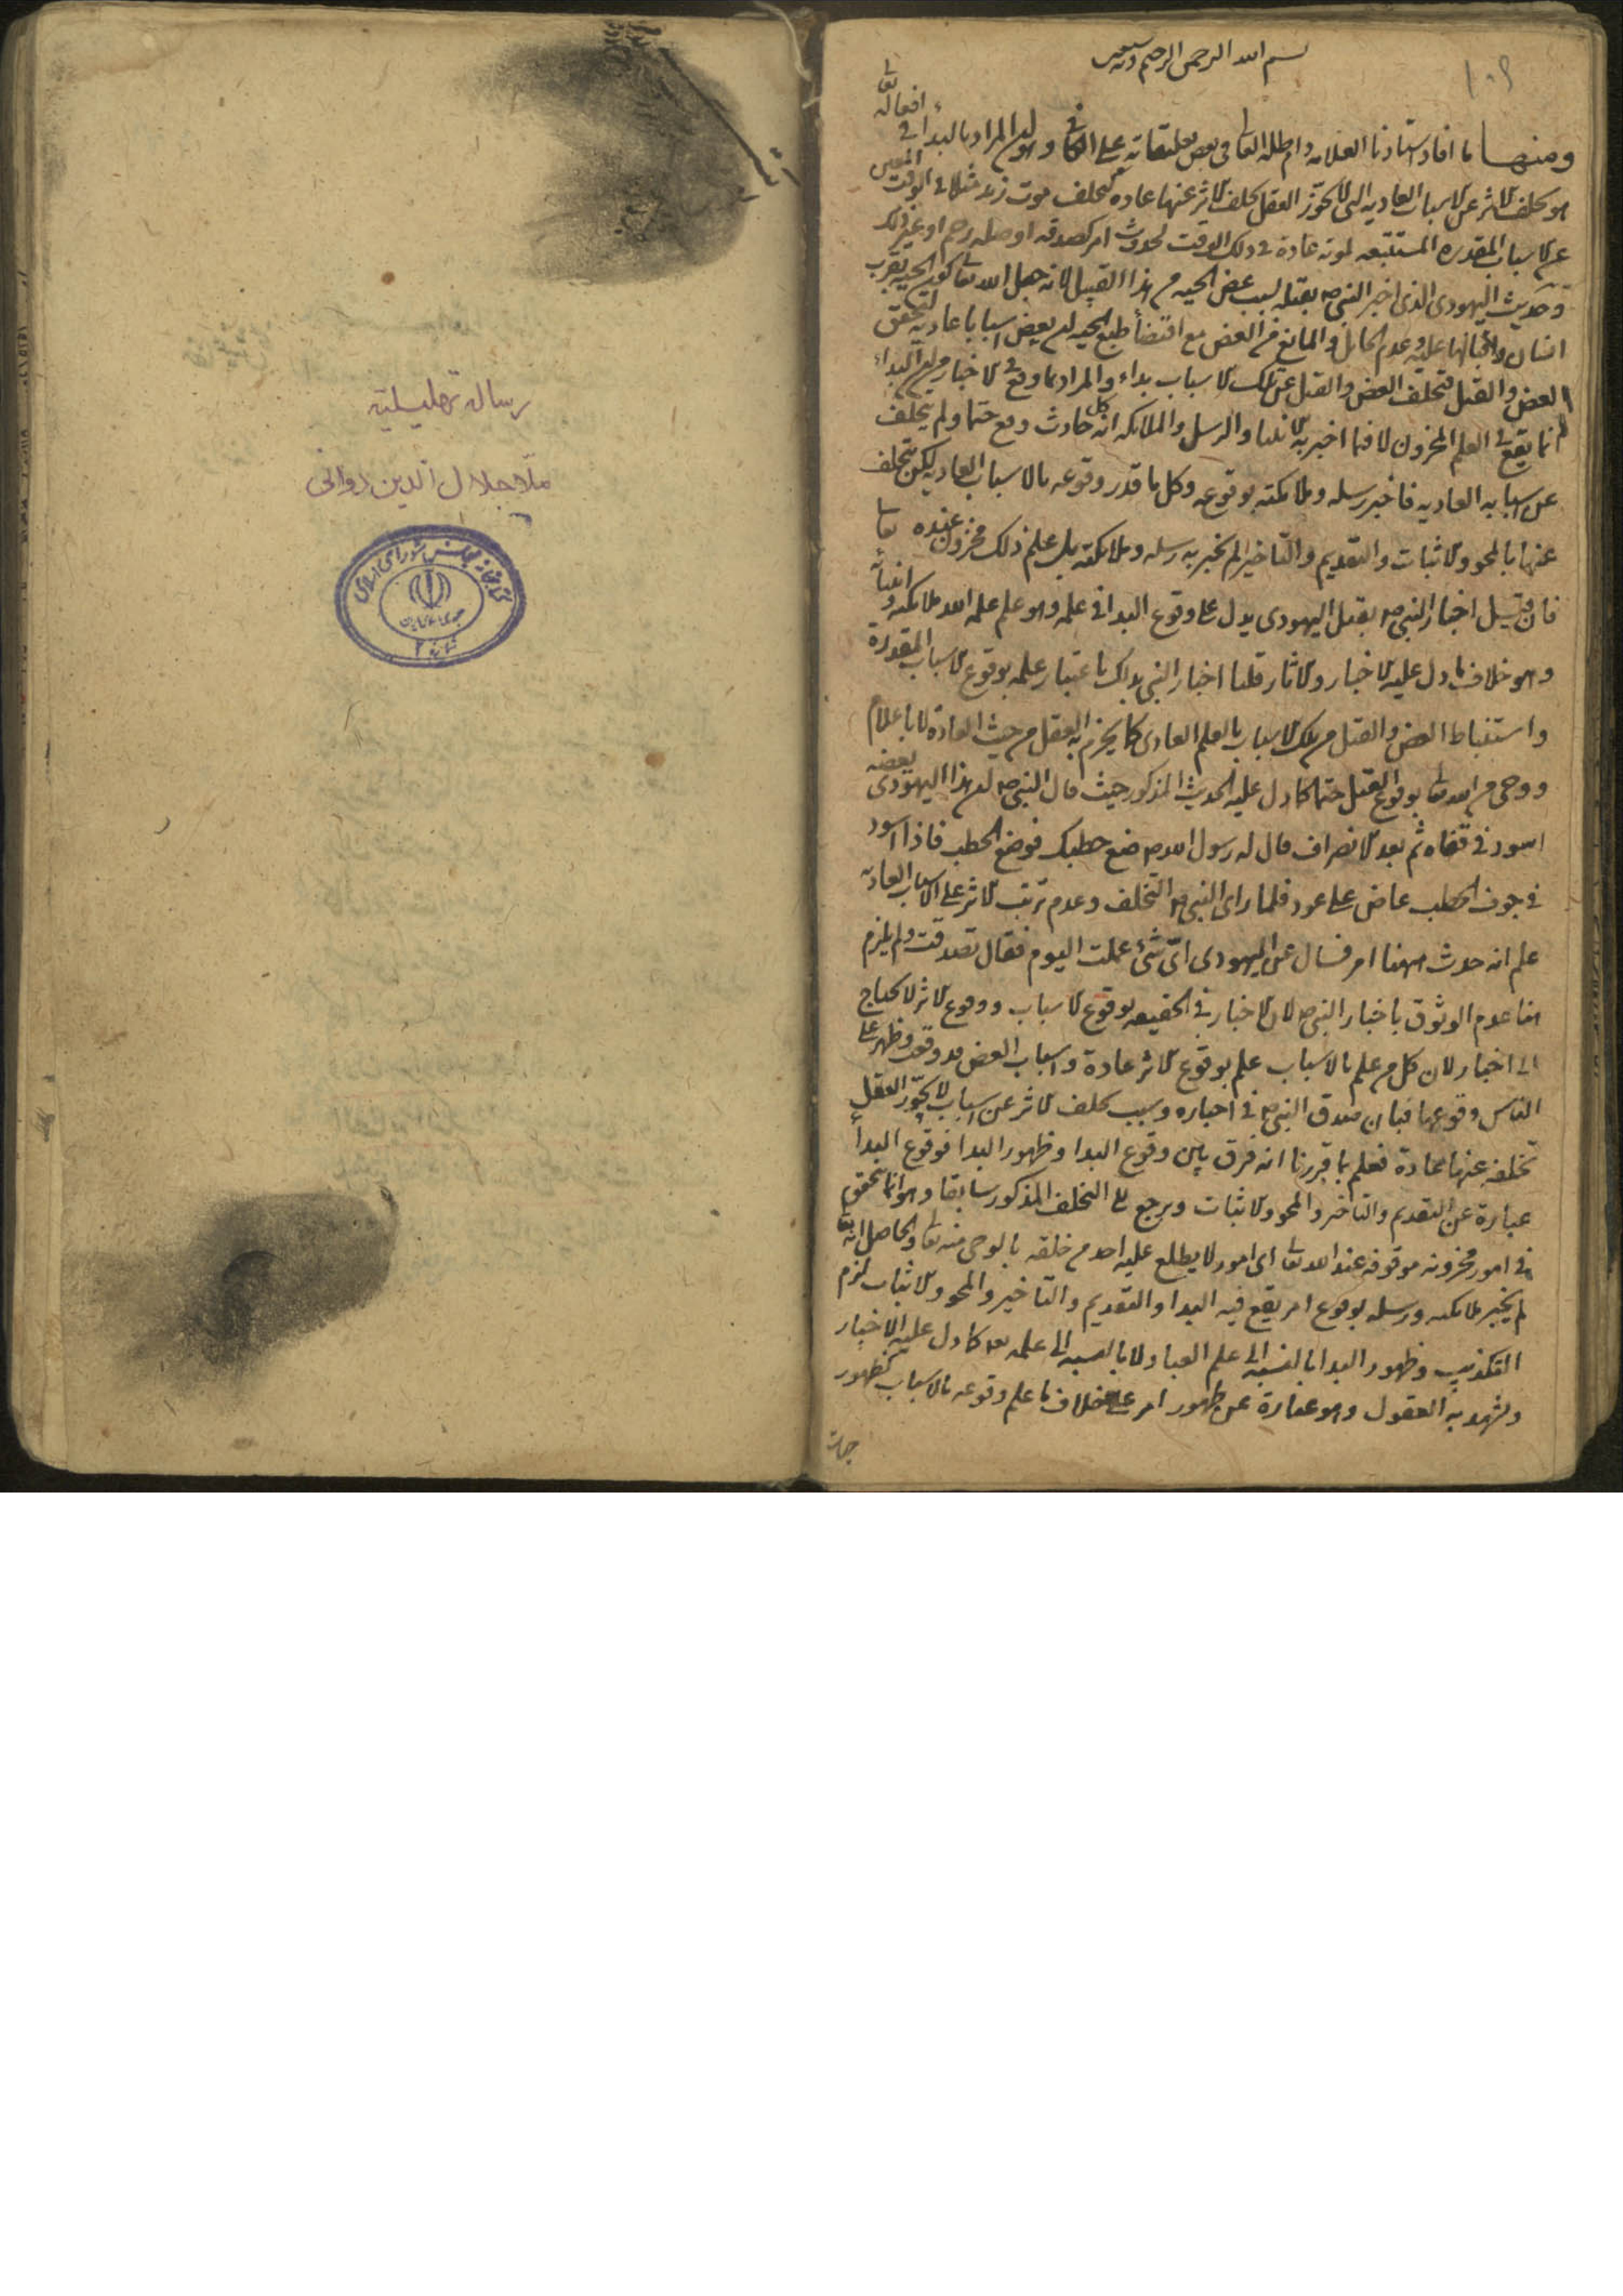 ١٠٩
بسم الله الرحمن الرحيم وبه نستعين
ومنها ما افاد استادنا العلامه دام ظله العالى في بعض تعليقاته على الكافي وهو ان المراد بالبدا في افعاله تعالى
هو تخلف الاثر عن الاسباب العاديه التى لا يجوز العقل تخلف الاثر عنها عاده كتخلف موت زيد مثلا في الوقت المعين
عن الاسباب المقدره المستتبعه لموته عادة في ذلك الوقت لحدوث امر كصدقه او صله رحم او غير ذلك
وحديث اليهودى الذى اخبر النبي ص بقتله بسبب عض الحيه من هذا القبيل لانه جعل الله تعالى كون الحيه بقرب
انسان واقبالها عليه وعدم الحائل والمانع من العض مع اقتضاء طبع الحيه لان يعض اسبابا عاديه لتحقق
العض والقتل فتخلف العض والقتل عن تلك الاسباب بداء والمراد بما وقع في الاخبار من ان البداء
انما يقع في العلم المخزون لا فيما اخبر به الانبياء والرسل والملائكه ان كل حادث وقع حتما ولم يتخلف
عن اسبابه العاديه فاخبر رسله وملائكته بوقوعه وكل ما قدر وقوعه بالاسباب العاديه لكن تخلف
عنها بالمحو والاثبات والتقديم والتاخير لم يخبر به رسله وملائكته بل علم ذلك مخزون عنده تعالى
فان قيل اخبار النبي ص بقتل اليهودى يدل على وقوع البدا في علمه وهو علم علمه الله ملائكته وانبيائه
وهو خلاف ما دل عليه الاخبار والاثار قلنا اخبار النبي بذلك باعتبار علمه بوقوع الاسباب المقدرة
واستنباط العض والقتل من تلك الاسباب بالعلم العادى كما يجزم به العقل من حيث العادة لا باعلام
ووحى من الله تعالى بوقوع القتل حتما كما دل عليه الحديث المذكور حيث قال النبي ص ان هذا اليهودى يعضه
اسود في قفاه ثم بعد الانصراف قال له رسول الله ص ضع حطبك فوضع الحطب فاذا اسود
في جوف الحطب عاض على عود فلما راى النبي ص التخلف وعدم ترتب الاثر على الاسباب العاديه
علم انه حدث ههنا امر فسال عن اليهودى اى شئ عملت اليوم فقال تصدقت ولم يلزم
هنا عدم الوثوق باخبار النبي ص لان الاخبار في الحقيقه بوقوع الاسباب ووقوع الاثر لا يحتاج
الى اخبار لان كل من علم بالاسباب علم بوقوع الاثر عادة واسباب العض قد وقعت وظهر على
الناس وقوعها فبان صدق النبي ص في اخباره وسبب تخلف الاثر عن اسباب لا يجوز العقل
تخلفه عنها عادة فعلم بما قررنا انه فرق بين وقوع البدا وظهور البدا فوقوع البدا
عبارة عن التقديم والتاخير والمحو والاثبات ويرجع الى التخلف المذكور سابقا وهو انما يتحقق
في امور مخزونه موقوفه عند الله تعالى اى امور لا يطلع عليه احد من خلقه بالوحى منه تعالى والحاصل انه تعالى
لم يخبر ملائكته ورسله بوقوع امر يقع فيه البدا والتقديم والتاخير والمحو والاثبات لئلا يلزم
التكذيب وظهور البدا بالنسبه الى علم العباد لا بالنسبه الى علمه تعالى كما دل عليه الاخبار
ويشهد به العقول وهو عبارة عن ظهور امر على خلاف ما علم وقوعه بالاسباب كظهور
رساله تهليليه
ملا جلال الدين دوانى
كتابخانه مجلس شوراى اسلامى
جمهورى اسلامى ايران
شماره ٢